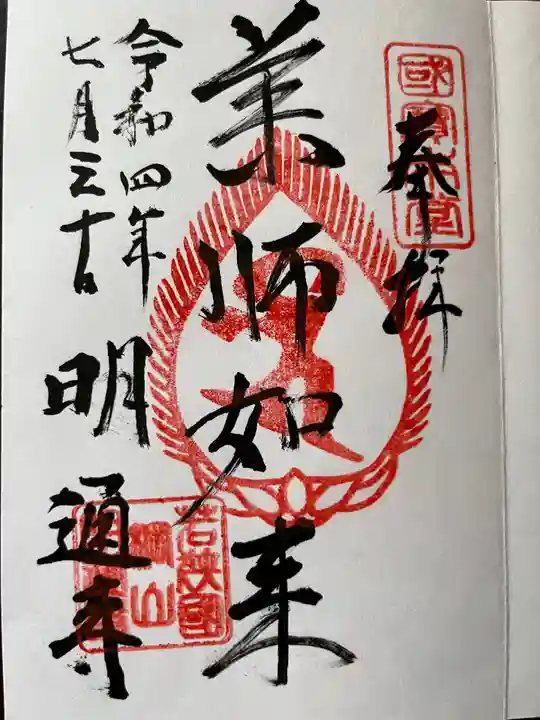 奉拝
薬師如来
令和四年
七月三十日
明通寺
若狭國
棡山